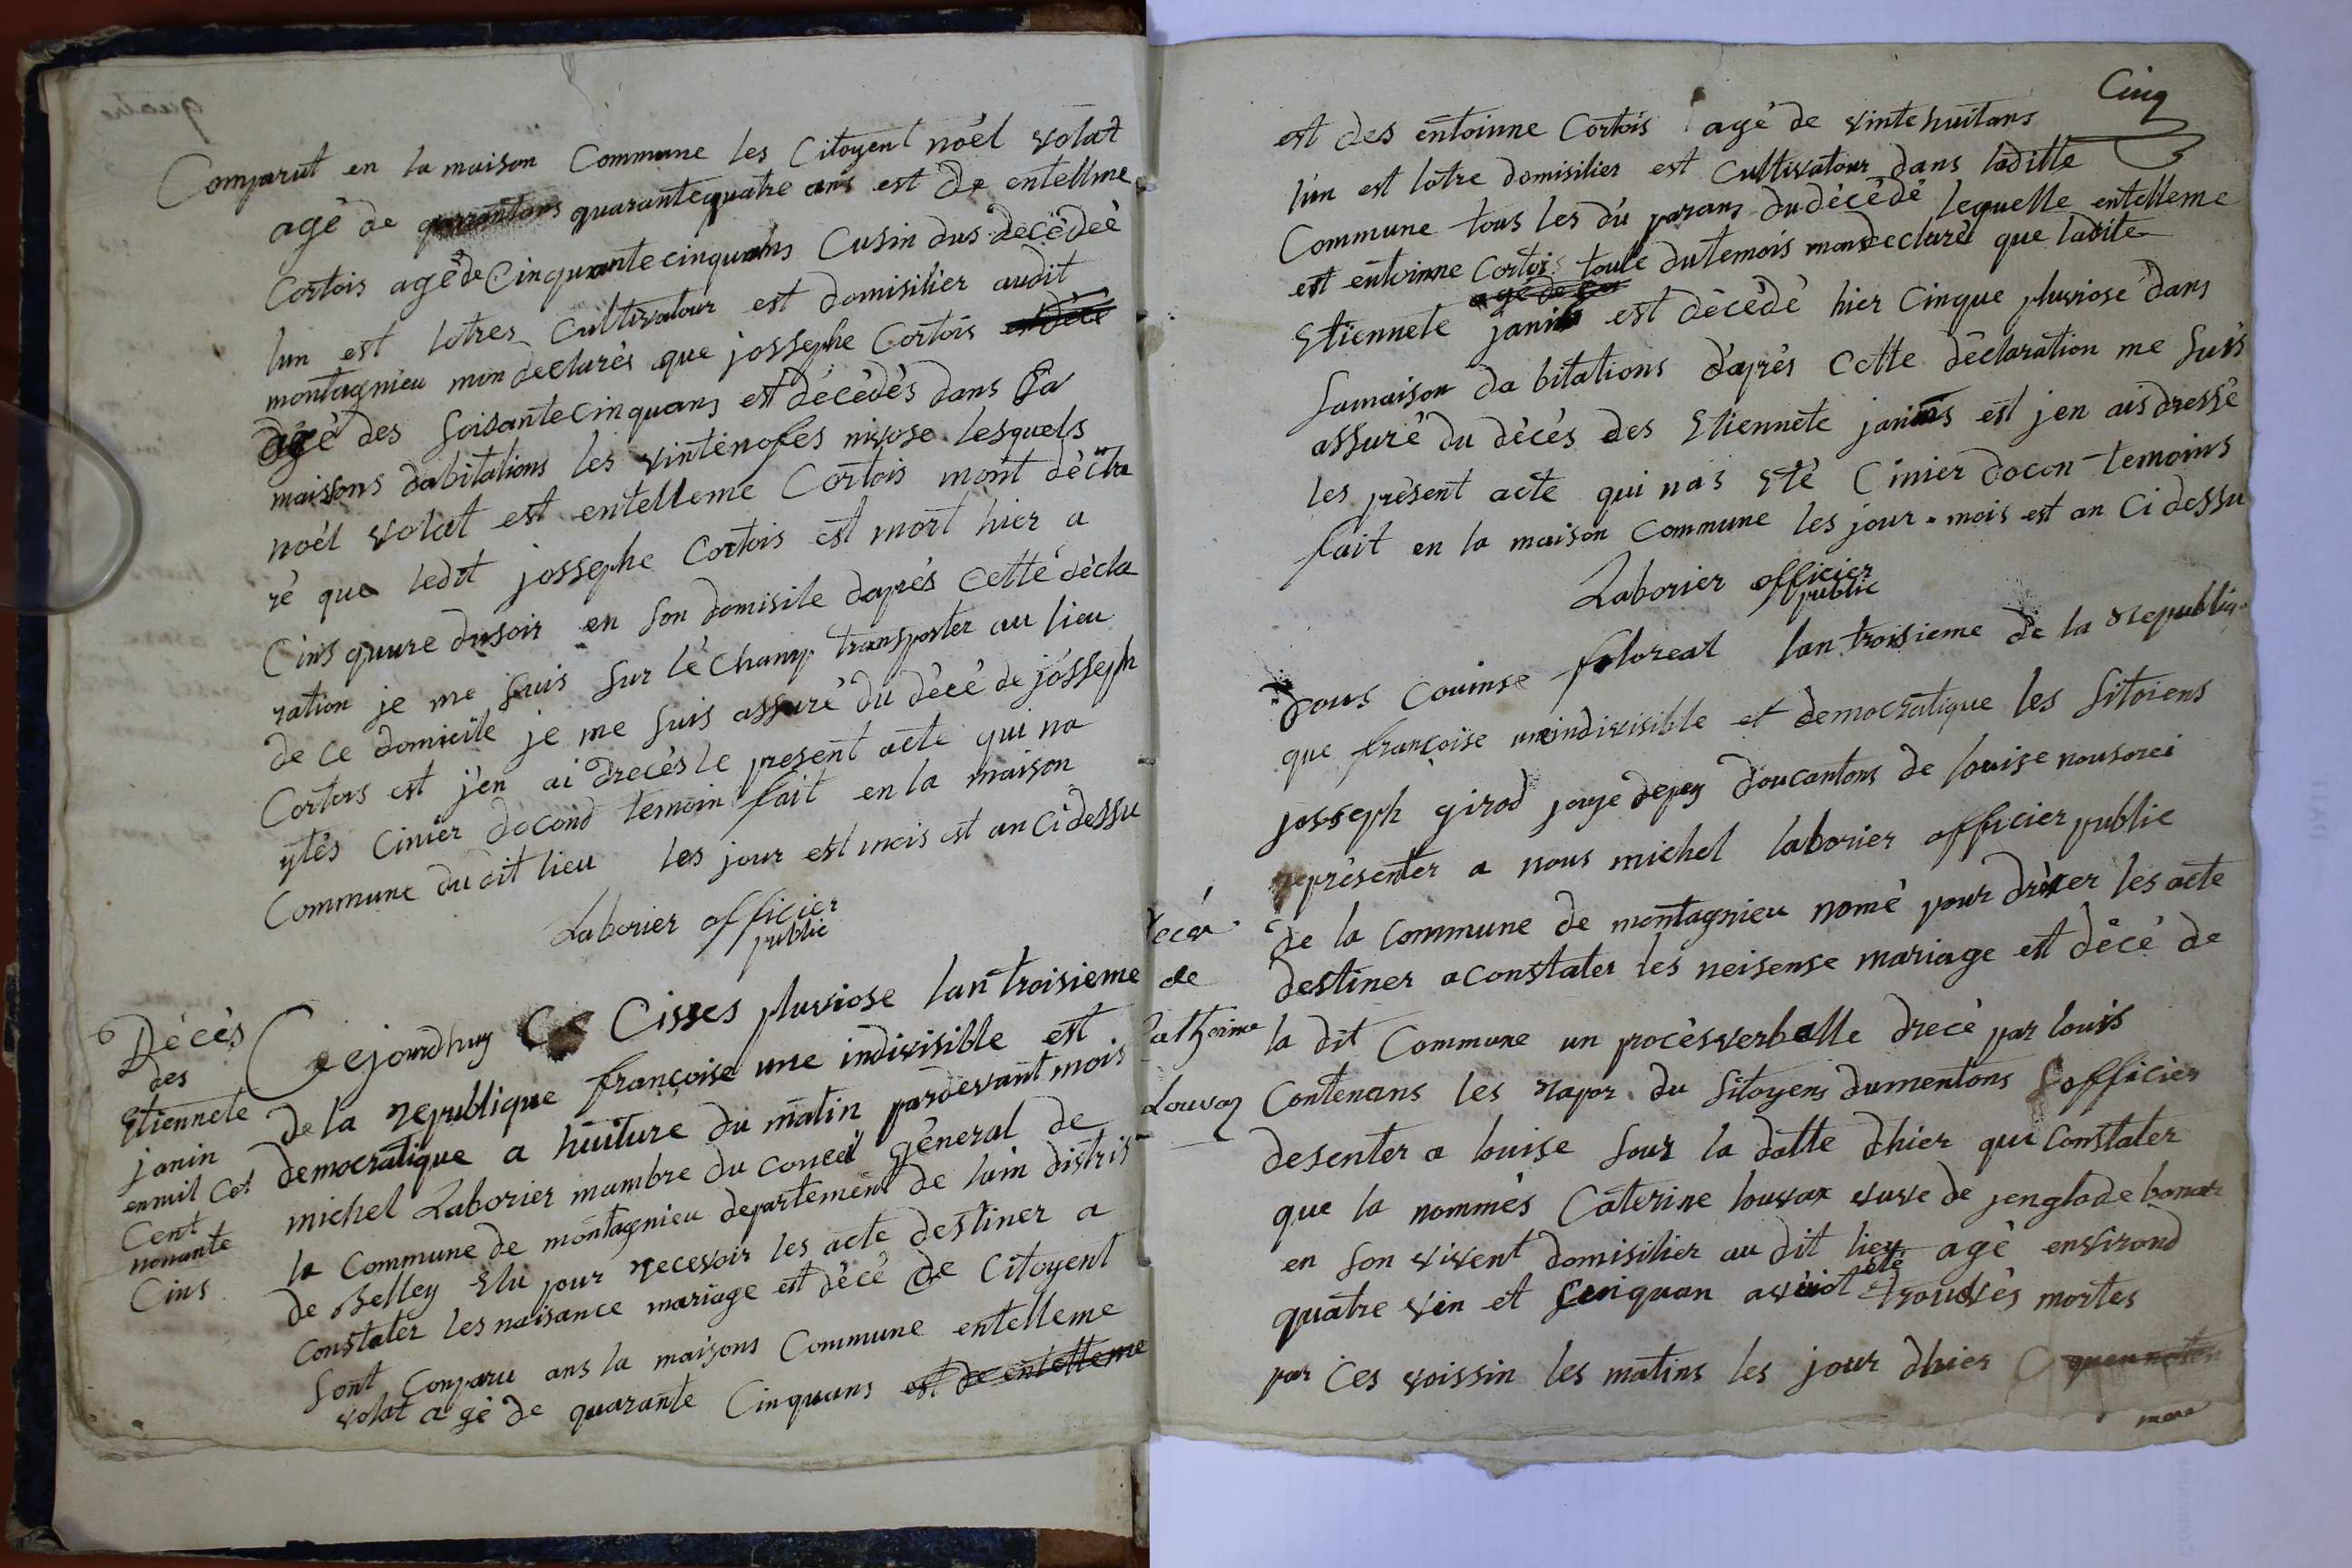 Comparut en la maison Commune les Citoyent noèl volat
agé de quarantequatre ans est de entellme
Cortois agé de Cinquantecinquans Cusin dus décédéé
lun est lotres Cultivatour est domisilier audit
montagnieu mon declarés que jossephe Cortois est décé
agé des soisantecinquans est décédés dans sa
maisons dabitations les vintenofes nivose lesquels
noèl volat est entelleme Cortois mont décla
ré que ledit jossephe Cortois est mort hier a
Cins quure dusoir en son domisile daprés cette décla
ration je me suis sur lé champ transporter au lieu
de ce domicile je me suis assuré du décé de josseph
Cortois est j'en ai drecés le present acte qui na
ytés Cinier docond temoin fait en la maison
Commune du dit lieu les jour est mois est an Ci dessu
Laborier officier
public
6
Décés
des
Etiennete
janin
en mil Cet
Cent
nonante
Cins
Cejourdhuy Cisses pluviose lan troisieme
de la republique françoise une indivisible est
democratique a huiture du matin pardevant mois
michel Laborier mambre du conceil géneral de
la Commune de montagnieu departement de lain distris
de Belley Elu pour recevoir les acte destiner a
Constater les naisance mariage est décé de Citoyent
sont Conparu ans la maisons Commune entelleme
volat agé de quarante Cinquans est de entelleme
Cinq
est des entoinne Cortois agé de vintehuitans
lun est lotre domisilier est Cultivatour dans ladille
Commune tous les du parans du décédé lequelle entelleme
est entoinne Cortois toule dutemois mondeclaré que ladite
agé de
Etiennete janin est décédé hier Cinque pluviose dans
samaison dabitations daprés Cette déclaration me suis
assuré du décés des Etiennete janins est jen ais dressé
les présent acte qui nas Eté Cinier docon temoins
fait en la maison Commune les jour mois est an Ci dessu
Laborier officier
public
dous Couinse floreal lan troisieme de la republiq
que françoise une indivisible et democratique les sitoiens
josseph girod juye depey doucantons de louise nousorei
représenter a nous michel laborier officier public
de la commune de montagnieu nomé pour drécer les acte
destiner a constater les neisense mariage est décé de
de
Catherine
Louvaz
la dit Commune un procésverballe drecé par louis
Contenans les rapor du sitoyens dumentons sofficier
desenter a louise sous la datte dhier qui constater
que la nommés Caterine louvax vuve de jenglode
en son vivent domisilier au dit lieu agé environd
quatre vin et sinquan été trouvés mortes
par Ces voissin les matins les jour dhier